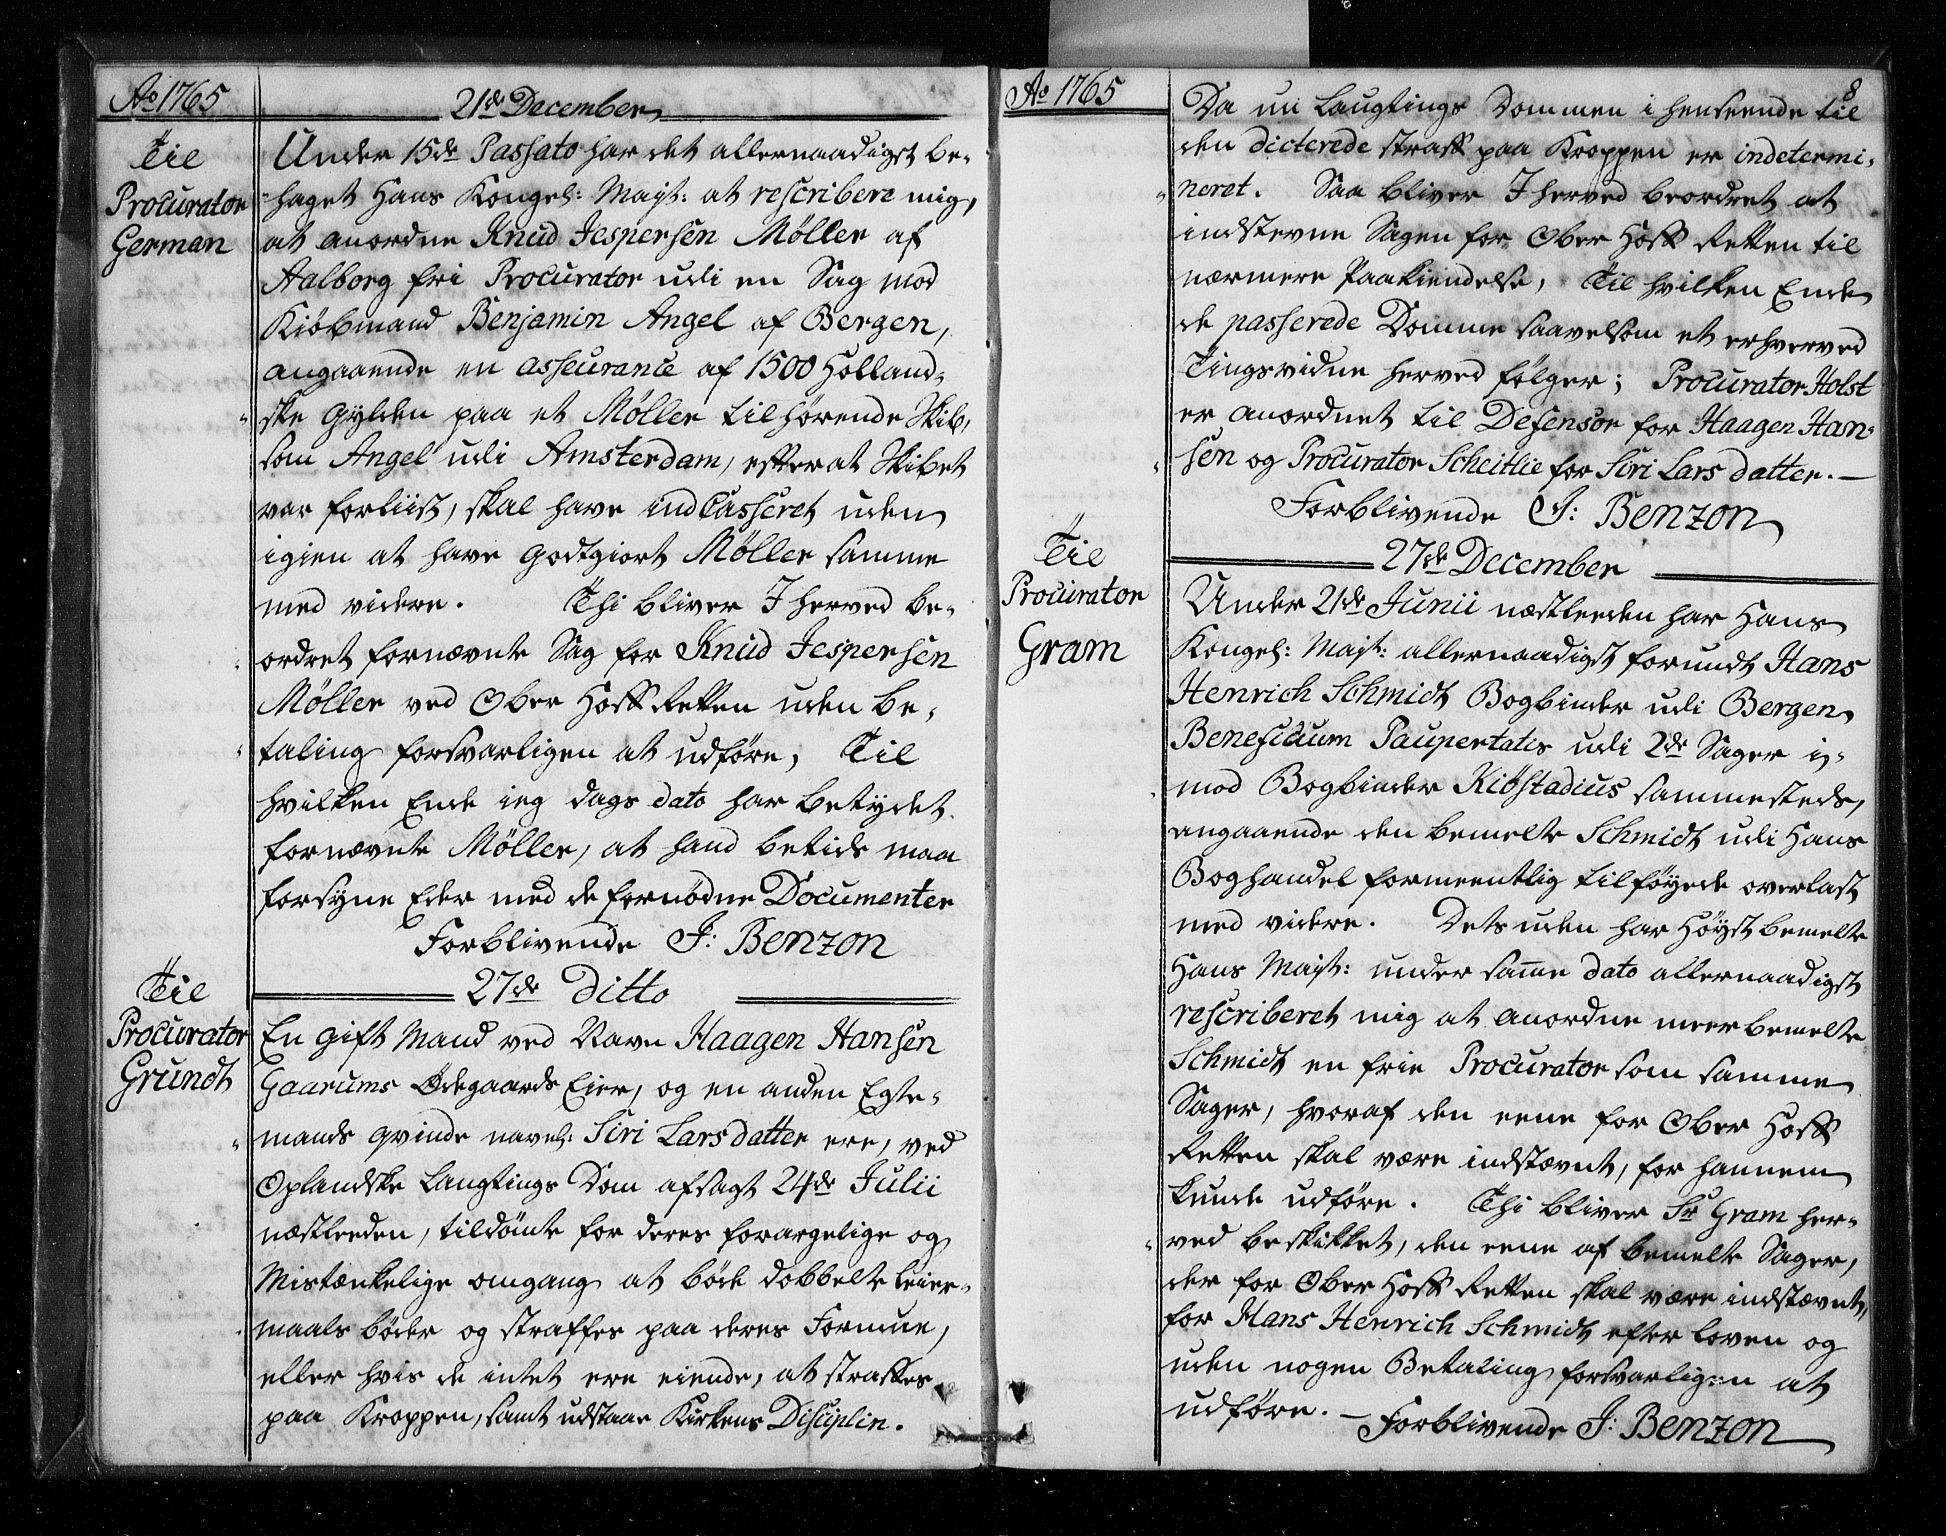 Ao 1765
21de December
Til
Procurator
German
Under 15de Passato har det allernaadigst be-
haget Hans Kongel: Mayt: at rescribere mig,
at anordne Knud Jespersen Møller af
Aalborg fri Procurator udi en Sag mod
Kiöbmand Benjamin Angel af Bergen,
angaaende en asseurance af 1500 Holland-
ske Gylden paa et Møller tilhørende Skib,
som Angel udi Amsterdam, efterat Skibet
var forliist, skal have indCasseret uden
igien at have godtgiort Møller samme
med videre. Thi bliver I herved be-
ordret fornævnte Sag for Knud Jespersen
Møller ved Ober Hoff Retten uden be-
taling forsvarligen at udföre, Til
hvilken Ende ieg dags dato har betydet
fornævnte Møller, at hand betids maa
forsyne Eder med de fornødne Documenter
Forblivende J: Benzon
27de Ditto
Til
Procurator
Grundt
En gift Mand ved Navn Haagen Hansen
Gaarums Ødegaards Eier, og en anden Egte-
mands qvinde navnl: Siri Larsdatter ere, ved
Oplandske Laugtings Dom afsagt 24de Julii
næstleeden, tildömte for deres forargelige og
Mistænkelige omgang at böde dobbelte leier-
maals böder og straffes paa deres Formue,
eller hvis de intet ere eiende, at straffes
paa Kroppen, samt udstaae Kirkens Disciplin.
Ao 1765
8
Da nu Laugtings Dommen i henseende til
den dicterede straff paa Kroppen er indetermi-
neret. Saa bliver I herved beordret at
indstevne Sagen for Ober Hoff Retten til
nærmere Paakiendelse, Til hvilken Ende
de passerede Domme saavelsom et erhverved
Tingsvidne herved fölger; Procurator Holst
er anordnet til Defensor for Haagen Han-
sen og Procurator Scheitlie for Siri Lars datter.
Forblivende J: Benzon
27de December
Til
Procurator
Gram
Under 21de Junii næstleeden har Hans
Kongel: Mayt: allernaadigst forundt Hans
Henrich Schmidt Bogbinder udi Bergen
Beneficium Paupertatis udi 2de Sager i-
mod Bogbinder Kiöstadius sammesteds,
angaaende den bemelte Schmidt udi Hans
Boghandel formeentlig tilföyede overlast
med videre. Dets uden har Höyst bemelte
Hans Mayt: under samme dato allernaadigst
rescriberet mig at anordne meerbemelte
Schmidt en frie Procurator som samme
Sager, hvoraf den eene for Ober Hoff
Retten skal være indstævnt, for hannem
kunde udföre. Thi bliver Sr Gram her-
ved beskikket, den eene af bemelte Sager,
der for Ober Hoff Retten skal være indstævnt,
for Hans Henrich Schmidt efter loven og
uden nogen Betaling forsvarligen at
udföre. Forblivende J: Benzon